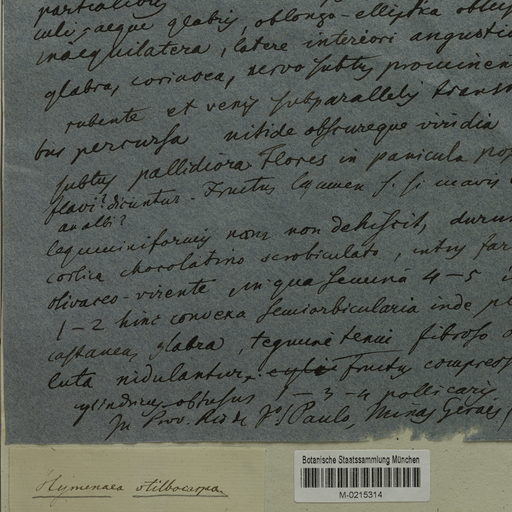 particulis
culis, aeque glabris, oblongo-elliptica obtus
inaequilatera, latere interiori angustio
glabra, coriacea, nervo subtus prominent
rubente et venis subparallelis transv
bus percursa nitide obscureque viridia
subtus pallidiora. Flores in panicula
flavi? dicuntur. Fructus legumen s. si mavis
an albi?
leguminiformis non dehiscit, durus
cortice chocolatino scrobiculato, intus far
olivaceo-virente, in qua semina 4-5
1-2 hinc convexa semiorbicularia inde pl
castanea, glabra, tegumento tenui fibroso
luta nidulantur. Fructus compress
cylindricus obtusus 1-3-4 pollicaris
In Prov. Rio de J. S. Paulo, Minas Geraes,
Hymenaea stilbocarpa
Botanische Staatssammlung München
M-0215314